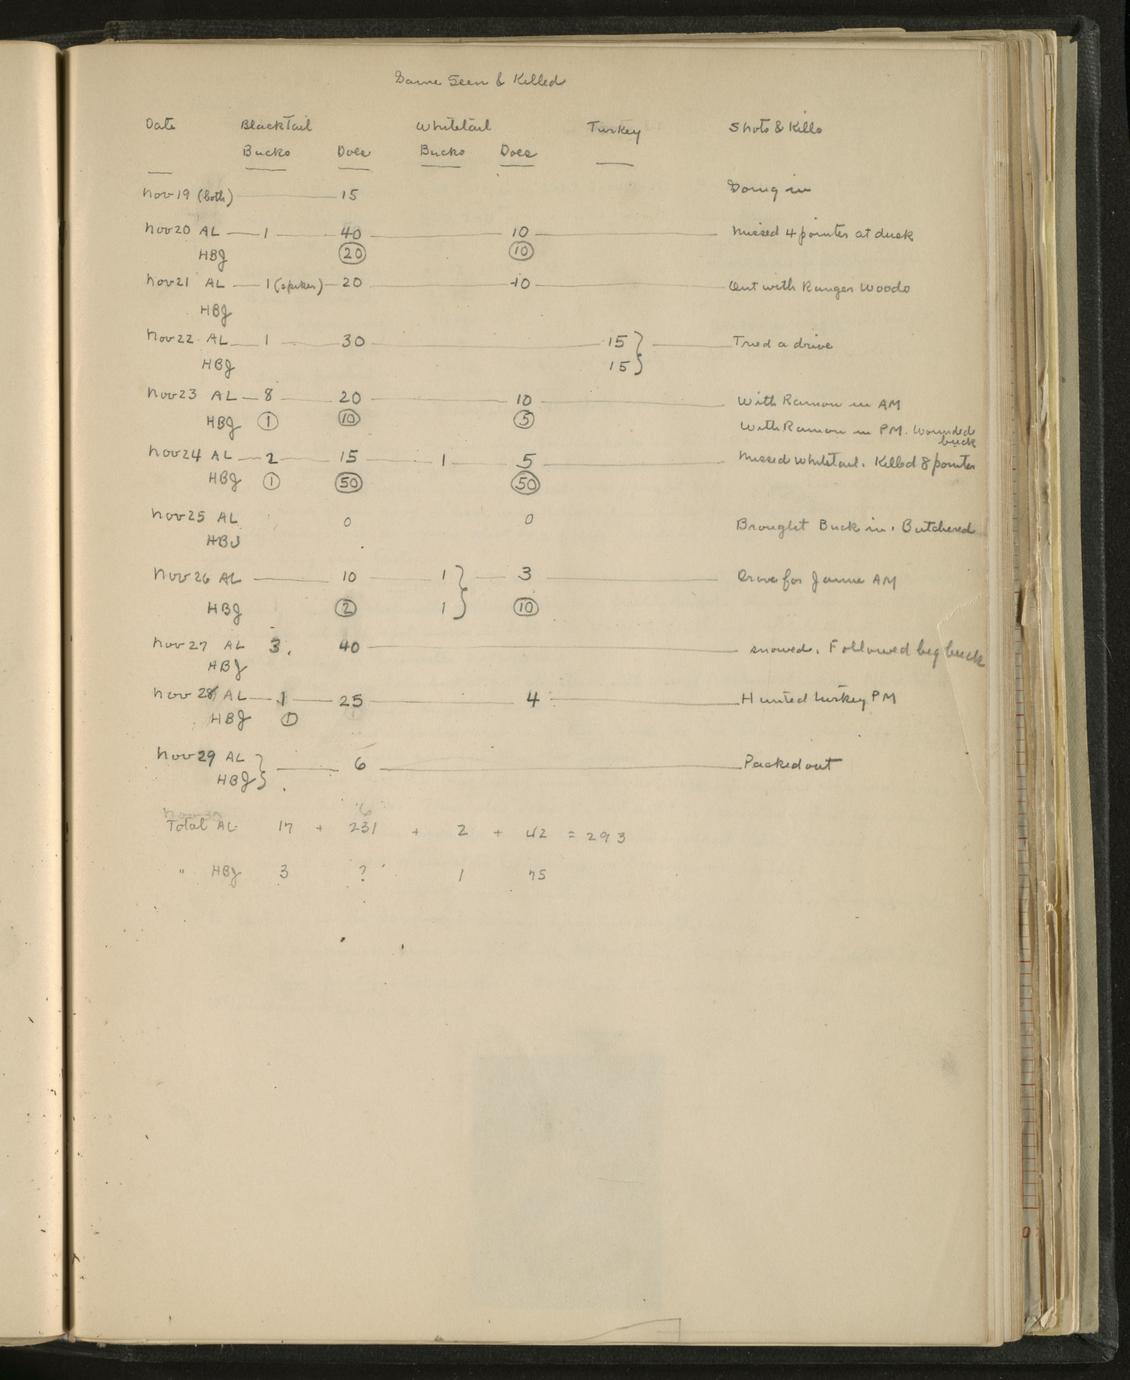 Game Seen & Killed
Date Blacktail Whitetail Turkey Shots & Kills
Bucks Does Bucks Does
Nov 19 (both) 15 Going in
Nov 20 AL 1 40 10 Missed 4 pointer at dusk
HBJ 20 10
Nov 21 AL 1 (spiker) 20 10 Out with Ranger Woods
HBJ
Nov 22 AL 1 30 15 Tried a drive
HBJ 15
Nov 23 AL 8 20 10 With Ramon in AM
HBJ 1 10 5 With Ramon in PM. Wounded buck
Nov 24 AL 2 15 1 5 Missed whitetail. Killed 8 pointer
HBJ 1 50 50
Nov 25 AL 0 0 Brought Buck in. Butchered
HBJ
Nov 26 AL 10 1 3 Drove for Jamie AM
HBJ 2 1 10
Nov 27 AL 3. 40 snowed. Followed big buck
HBJ
Nov 28 AL 1 25 4 Hunted turkey PM
HBJ 1
Nov 29 AL 6 Packed out
HBJ
Nov 30 6
Total AL 17 + 231 + 2 + 42 = 293
" HBJ 3 ? 1 75